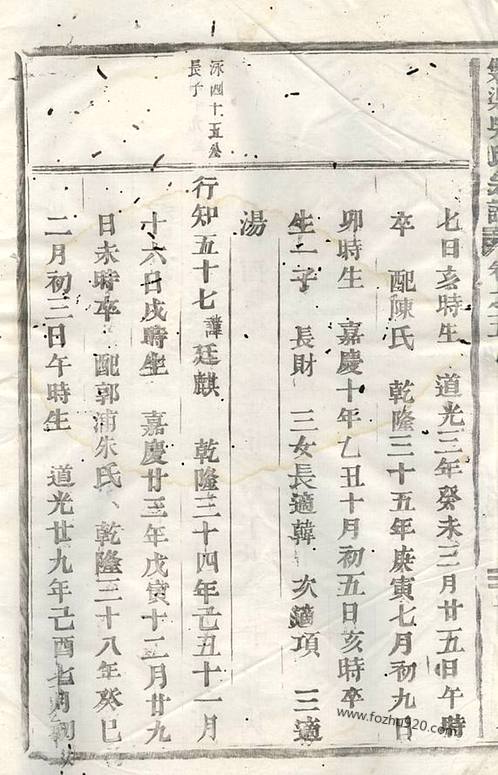 七日亥時生 道光三年癸未三月廿五日午時
卒 配陳氏 乾隆三十五年庚寅七月初九日
卯時生 嘉慶十年乙丑十月初五日亥時卒
生一子 長財 三女長適韓 次適項 三適
湯
泳四十五公
長子
行知五十七諱廷麒 乾隆三十四年己丑十一月
十六日戌時生 嘉慶廿三年戊寅十二月廿九
日未時卒 配郭浦朱氏、乾隆三十八年癸巳
二月初三日午時生 道光廿九年己酉七月初
www.fozhu920.com